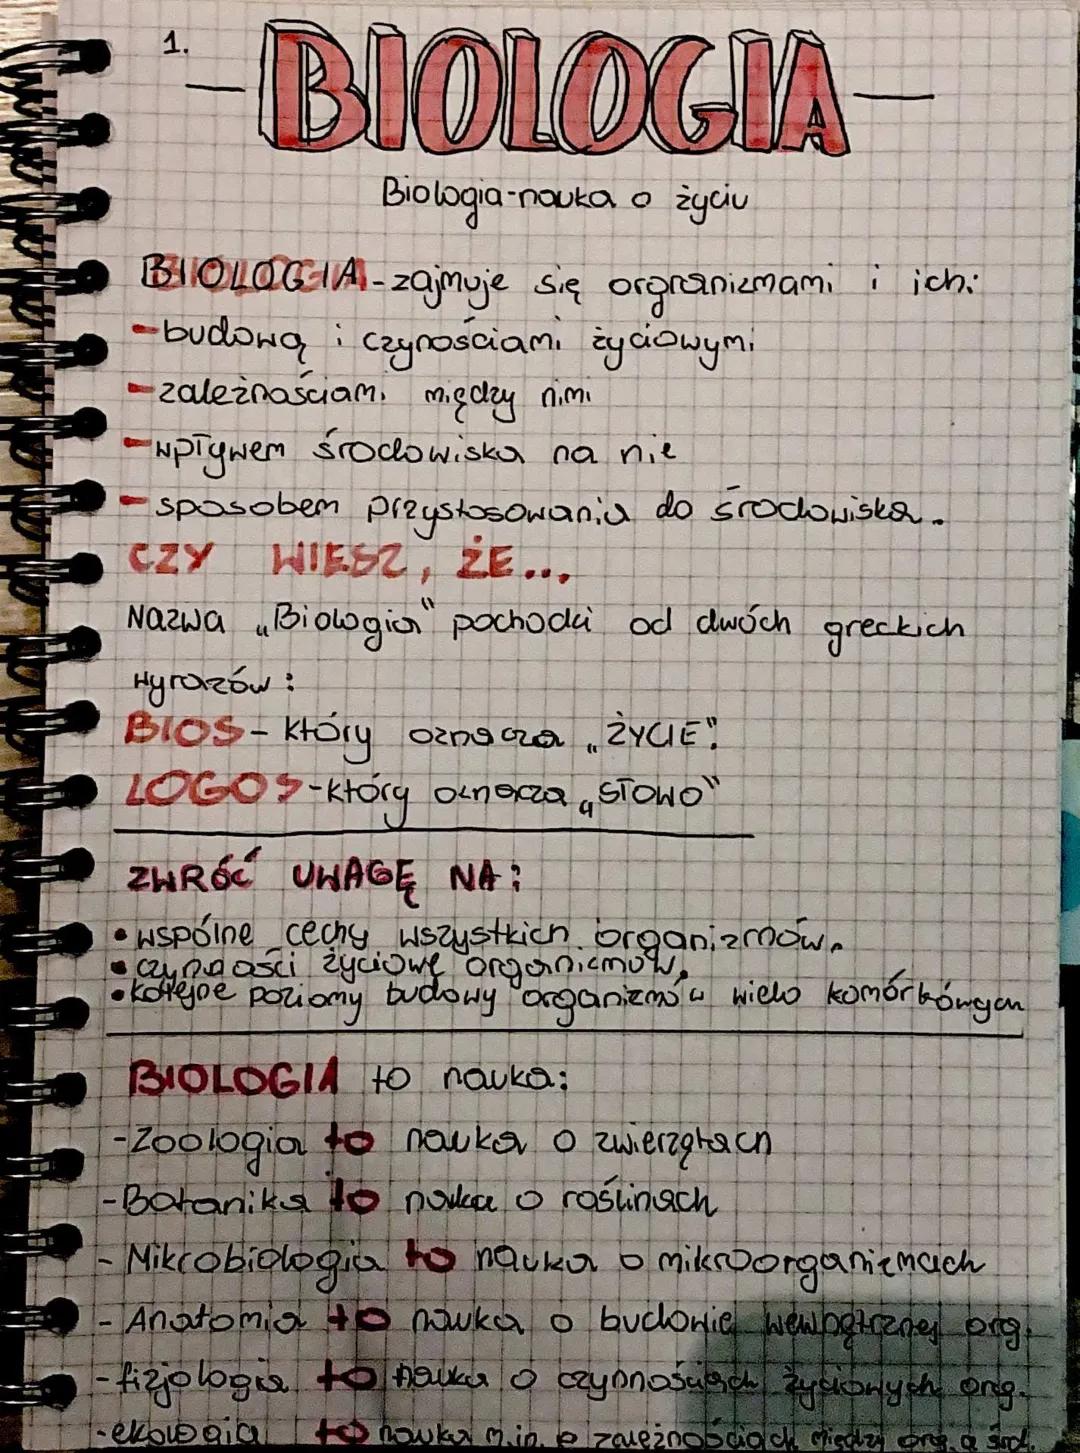 1.
BIOLOGIA
Biologia-nauka o życiu
BIOLOGIA-zajmuje się orgranizmami i ich:
-budową i czynościami życiowymi
-zależnaściami między nimi
-wpływem środowiska na nie
-sposobem przystosowania do środowiska.
CZY WIESZ, ŻE...
Nazwa „Biologia" pochodzi od dwóch greckich
wyrazów:
BIOS-który oznacza „ŻYCIE".
LOGOS-który oznacza „SŁOWO"
ZWRÓĆ UWAGĘ NA:
•wspólne cechy wszystkich organizmów.
•czynności życiowe organizmów.
•kolejne poziomy budowy organizmów wielo komórkowych
BIOLOGIA to nauka:
-Zoologia to nauka o zwierzętach
-Botanika to nauka o roślinach
-Mikrobiologia to nauka o mikroorganizmach
-Anatomia to nauka o budowie wewnętrznej org.
-fizjologia to nauka o czynnościach życiowych org.
-ekologia to nauka m.in. o zależnościach między org. a śrd.